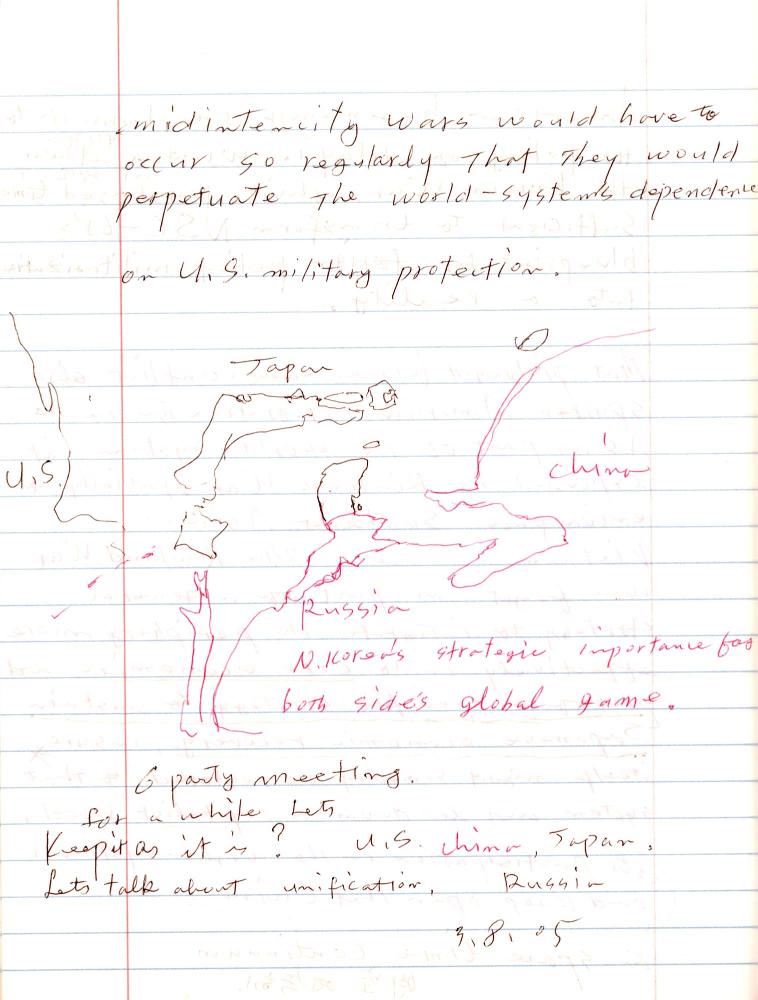 midintencity wars would have to
occur so regularly that they would
perpetuate the world-systems dependence
on U.S. military protection.
Japan
U.S.
china
Russia
N.Korea's strategic importance for
both side's global game.
6 party meeting.
for a while Lets
Keep it as it is? U.S. china, Japan,
Lets talk about unification, Russia
3.8.05